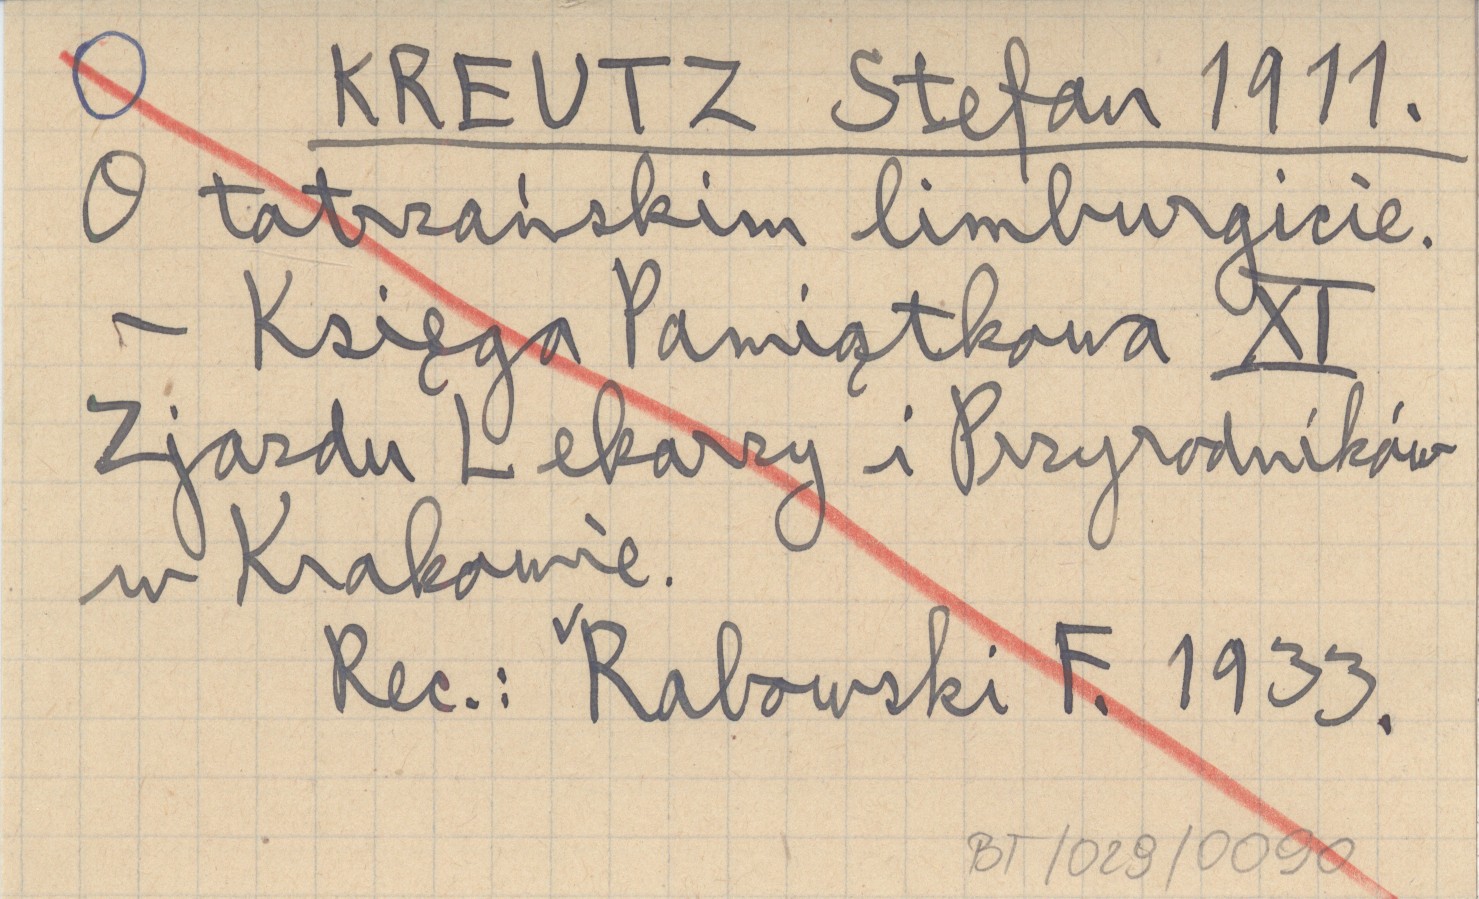 KREUTZ Stefan 1911.
O tatrzańskim limburgicie.
- Księga Pamiątkowa XI
Zjazdu Lekarzy i Przyrodników
w Krakowie.
Rec.: Rabowski F. 1933.
BT/029/0090